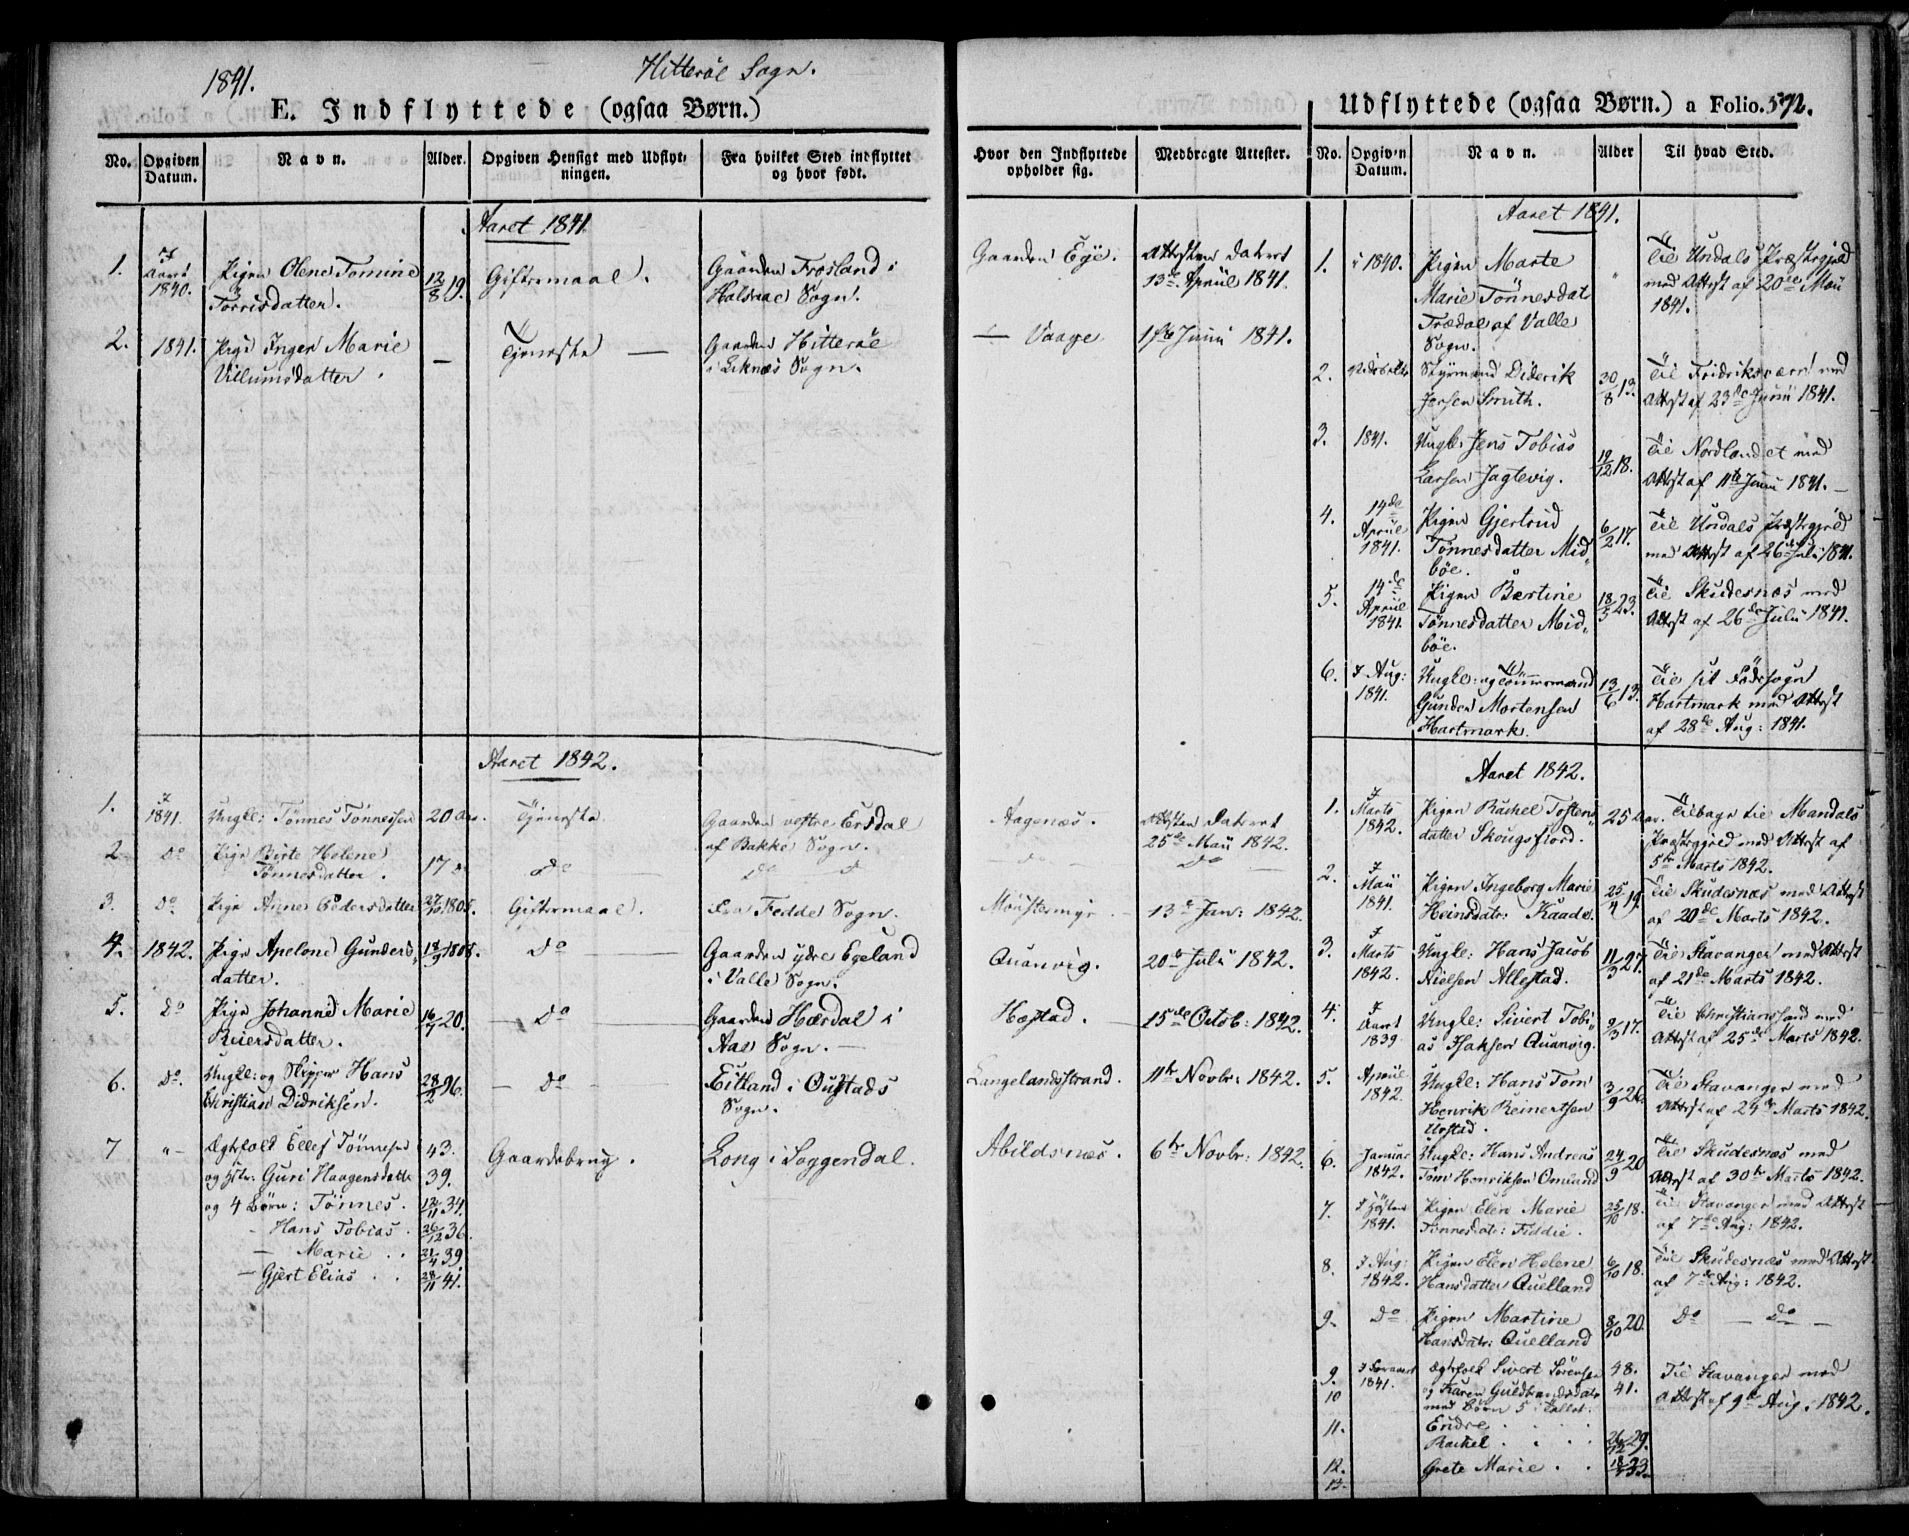 1841.
Hitteröe Sogn.
E. Indflyttede (ogsaa Børn.)
No.
Opgiven Datum.
Navn.
Alder.
Opgiven Hensigt med Udflyt- ningen.
Fra hvilket Sted indflyttet og hvor født.
Aaret 1841.
1.
I Aaret 1840.
Pigen Olene Tomine
Torrisdatter.
12/8 19.
Giftermaal.
Gaarden Frøsland i
Halsaae Sogn.
2.
1841.
Pige Inger Marie
Villumsdatter.
—
Tjeneste —
Gaarden Hitteröe
i Liknæs Sogn.
Aaret 1842.
1.
I 1841.
Ungk: Tönnes Tönnessen
20 Aar.
Tjeneste
Gaarden vestre Ersdal
af Bakke Sogn.
2
Do
Pige Birte Helene
Tönnesdatter.
17 do
do
do
3.
Do
Pige Anne Pedersdatter
27/10 1805.
Giftermaal.
fra Fedde Sogn.
4.
1842.
Pige Apelone Gunders-
datter.
18/9 1808.
Do
Gaarden ydre Egeland
i Valle Sogn.
5.
Do
Pige Johanne Marie
Reiersdatter.
16/7 20.
Do
Gaarden Hærdal i
Aae Sogn.
6.
Do.
Ungk: og Skipper Hans
Christian Didriksen.
28/2 96.
Do
Eitland i Oustads
Sogn.
7
Ægtefolk Ellef Tönnesen
43.
Gaardebrug.
Long i Soggendal.
og Hstr: Guri Haagensdatter
39.
og 4 Börn: Tönnes.
12/11 34.
Hans Tobias.
26/12 36.
— Marie . .
21/4 39.
— Gjert Elias . .
28/11 41.
Hvor den Indflyttede opholder sig.
Medbragte Attester.
Gaarden Eye.
Attesten dateret
13de Apriil 1841.
— Vaage
1ste Juni 1841.
Aagenæs.
Attesten dateret
25de Mai 1842.
do
Do
13de Jan: 1842.
Quanvig.
20de Juli 1842.
Hæstad.
15de Octob: 1842.
Langelandsstrand.
11te Novbr: 1842.
Abildsnæs.
6te Novbr: 1842.
Udflyttede (ogsaa Børn.) a Folio. 592.
No.
Opgiven Datum.
Navn.
Alder
Til hvad Sted.
Aaret 1841.
1.
i 1840.
Pigen Marte
Marie Tönnesdat
Trædal af Valle
Sogn.
Til Undals Præstegjeld
med Attest af 20de Mai
1841.
2.
Styrmand Diderik
Jersen Smith.
30/8 13.
Til Fridriksværn med
Attest af 23de Juni 1841.
3.
1841.
Ungk: Jens Tobias
Larsen Jagtevig.
19/12 18.
Til Nordlandet med
Attest af 11te Juni 1841. —
4.
14de Apriil 1841.
Pigen Gjertrud
Tönnesdatter Mid-
böe.
6/2 17.
Til Undals Præstegjeld
med Attest af 26de Juli 1841.
5.
14de Apriil 1841.
Pigen Bertine
Tönnesdatter Mid-
böe.
18/5 23.
Til Skudesnæs med
Attest af 26de Juli 1841.
6.
I Aug: 1841.
Ungk: og Tömmermand
Gunder Mortensen
Hartmark.
13/6 13.
Til sit Födesogn
Hartmark med Attest
af 28de Aug: 1841.
Aaret 1842.
1.
I Marts 1842.
Pigen Rachel Tostens-
datter Skougsfiord.
25 Aar.
Tilbage til Mandals
Præstegjeld med Attest af
5te Marts 1842.
2.
I Mai 1841.
Pigen Ingeborg Marie
Heinsdatr: Kaade.
25/4 19.
Til Skudesnæs med Attest
af 20de Marts 1842.
3.
I Marts 1842.
Ungk: Hans Jacob
Nielsen Allestad.
11/3 27.
Til Stavanger med Attest
af 21de Marts 1842.
4.
I Aaret 1839.
Ungk: Sivert Tobi-
as Isaksen Quanvig.
9/3 17.
Til Christiansand med
Attest af 25de Marts 1842.
5.
Apriil 1842.
Ungk: Hans Tom
Henrik Reinertsen
Urstad.
3/9 26.
Til Stavanger med
Attest af 24de Marts 1842.
6.
Januar 1842.
Ungk: Hans Andreas
Tom Henriksen Omland
24/9 20
Til Skudesnæs med
Attest af 30te Marts 1842.
7.
I Hösten 1841.
Pigen Elen Marie
Tönnesdatr: Fiddie.
25/10 18.
Til Stavanger med Attest
af 7de Aug: 1842.
8.
I Aug: 1842.
Pigen Elen Helene
Hansdatter Quelland
6/10 18.
Til Skudesnæs med Attest
af 7de Aug: 1842.
9.
Do
Pigen Martine
Hansdatr: Quelland
8/10 20.
Do — Do —
9.
10
I Foraaret 1841.
Ægtefolk Sivert Sörensen
og Karen Guldbrandsdatr
med Börn
48.
41.
Til Stavanger med
Attest af 9de Aug: 1842.
11.
Endre . . .
Rachel . . .
26/12 29.
12.
Grete Marie . .
18/7 33.
13.